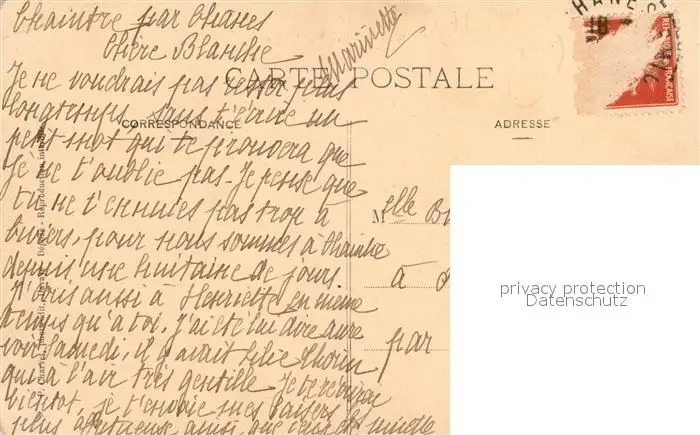 Chaintre par Chânes
Chère Blanche
Marinette
CARTE POSTALE
Je ne voudrais pas rester plus
longtemps sans t'écrire un
CORRESPONDANCE
ADRESSE
petit mot qui te prouvera que
Je ne t'oublie pas. Je pense que
tu ne t'ennuies pas trop à
pour nous sommes à Chaintre
depuis une huitaine de jours.
J'écris aussi à Henriette en même
temps qu'à toi, J'ai été lui dire au re
voir Samedi, il y avait
qui à l'air très gentille Je te verrai
bientôt, je t'envoie mes baisers
plus affectueuse ainsi que ceux de
Melle B
à
par
REPUBLIQUE FRANÇAISE
privacy protection
Datenschutz